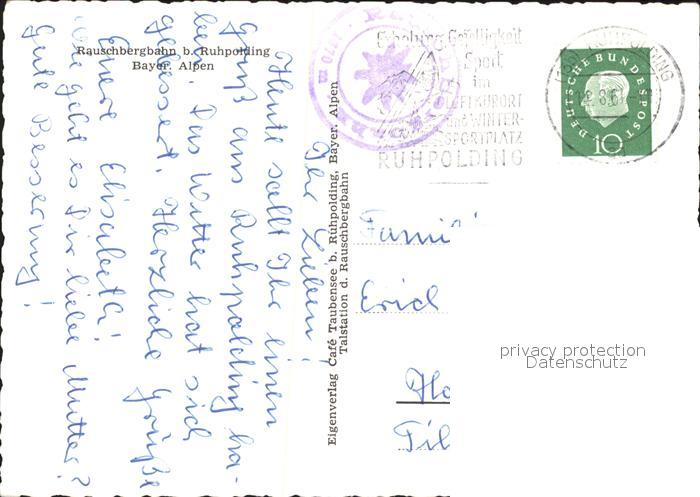 Rauschbergbahn b. Ruhpolding
Bayer. Alpen
Ihr Lieben!
Heute sollt Ihr einen
Gruß aus Ruhpolding ha-
ben. Das Wetter hat sich
gebessert. Herzliche Grüße
Eure Elisabeth!
Wie geht es Dir liebe Mutter?
Gute Besserung!
Eigenverlag Café Taubensee b. Ruhpolding, Bayer. Alpen
Talstation d. Rauschbergbahn
1770 m
Erholung Geselligkeit
Sport
im
LUFTKURORT
und WINTER-
SPORTPLATZ
RUHPOLDING
RUHPOLDING
DEUTSCHE BUNDESPOST
10
Fami
Erich
privacy protection
Datenschutz